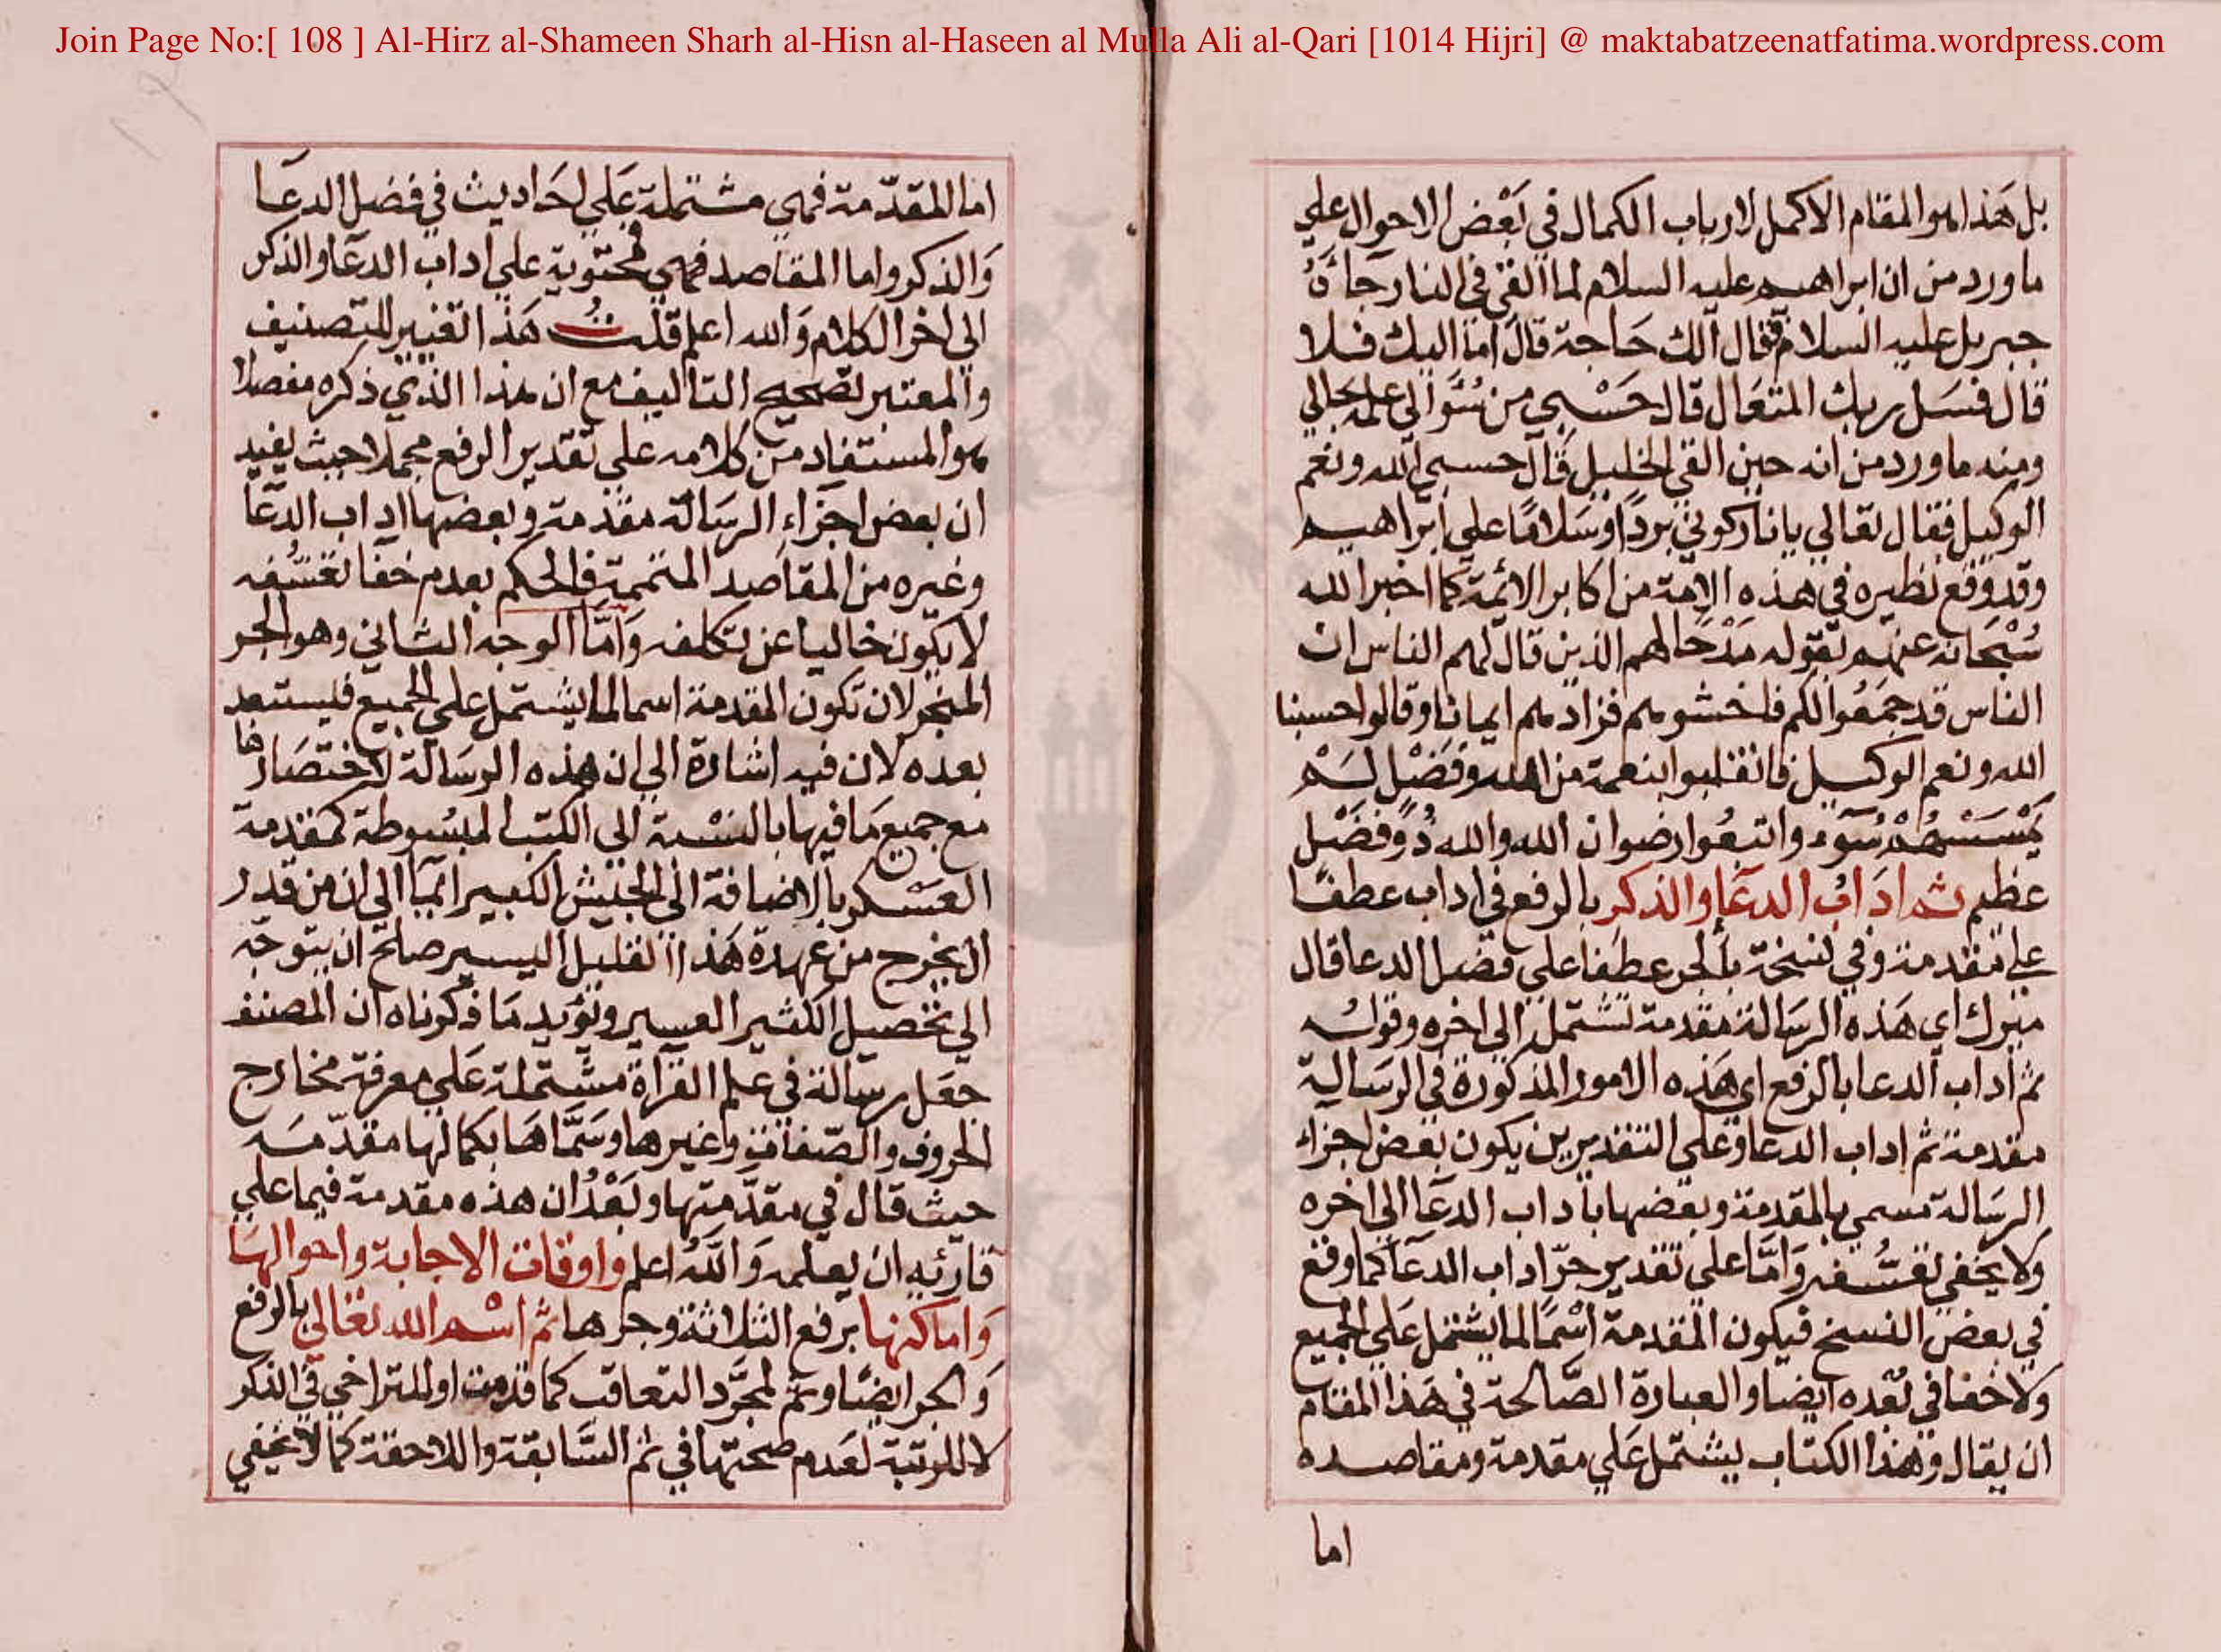 Join Page No:[ 108 ] Al-Hirz al-Shameen Sharh al-Hisn al-Haseen al Mulla Ali al-Qari [1014 Hijri] @ maktabatzeenatfatima.wordpress.com
بل هَذا هو المقام الاكمل لارباب الكمال في بَعْض الاحوال علي
ما ورد من ان ابراهيم عليه السلام لما القي في النار جَاءَهُ
جبريل عليه السلام فقال الك حَاجة قال اما اليك فلا
قال فسَل ربك المتعَال قال حَسْبي من سُؤالي علمه بحالي
ومنه ما ورد من انه حين القي الخليل قال حسبي الله ونعم
الوكيل فقال تعالي يا نار كوني بردًا وسَلامًا علي ابراهيم
وقد وقع نظيره في هذه الامة من اكابر الائمة كما اخبر الله
سُبْحَانه عنهم بقوله مَدْحًا لهم الذين قال لهم الناس ان
الناس قد جمَعُوا لكم فاخشوهم فزادهم ايمانا وقالوا حسبنا
الله ونعم الوكيل فانقلبوا بنعمة من الله وفَضْل لَمْ
يَمْسَسْهُمْ سُوء واتبعُوا رضوان الله والله ذُو فضْل
عظيم ثم ادَابُ الدعَا والذكر بالرفع في اداب عطفًا
علي مقدمة وفي نسخة بالجر عطفا علي فضل الدعا قال
ميرك اي هَذه الرسَالة مقدمة تشتمل الي اخره وقوله
ثم اداب الدعا بالرفع اي هَذه الامور المذكورة في الرسَالة
مقدمة ثم اداب الدعا وعَلي التقديرين يكون بعض اجزاء
الرسَالة تسمي بالمقدمة وبعضها باداب الدعَا الي اخره
ولا يخفي تعَسُّفه وَامَّا علي تقدير جرّ اداب الدعَا كما وقع
في بعض النسخ فيكون المقدمة اسْمًا لما يشتمل عَلي الجميع
ولا خفا في بُعْده ايضا والعبارة الصَّالحة في هَذا المقام
ان يقال وهَذا الكتاب يشتمل عَلي مقدمة ومقاصده
اما
اما المقدّمة فهي مشتملة عَلي احَاديث في فضل الدعَا
وَالذكر واما المقاصد فهي محتوية علي اداب الدعَا والذكر
الي اخر الكلام وَالله اعلم قلتُ هَذا تغيير للتصنيف
والمعتبر تصحيح التاليف مع ان هذا الذي ذكره مفصلا
هو المستفاد من كلامه علي تقدير الرفع مجملا حيث يفيد
ان بعض اجزاء الرسَالة مقدمة وبعضها اداب الدعَا
وغيره من المقاصد المتممة فالحكم بعدم خفا تعَسُّفه
لا يكون خاليا عن تكلفه وَامَّا الوجه الثاني وهو الجر
المنجر لان تكون المقدمة اسما لما يشتمل علي الجميع فليستبعد
بعده لان فيه اشارة الي ان هذه الرسَالة لاختصَارها
مع جميع مَا فيها بالنسْبة الي الكتب المبسُوطة كمقدمة
العسْكر بالاضافة الي الجيش الكبير ايمَا الي ان من قدر
ان يخرج من عهدة هَذا القليل اليسير صلح ان يتوجّه
الي تحصيل الكثير العسير ويؤيد مَا ذكرناه ان المصنف
جعَل رسَالة في علم القراة مشتملة عَلي معرفة مخارج
الحروف والصّفات وغيرها وسَمَّاهَا بكمالها مقدّمَه
حيث قال في مقدّمتها وبَعْدُ ان هذه مقدمة فيما علي
قارئه ان يعلمه وَاللّهُ اعلم واوقات الاجابة واحوالهَا
وَاماكنها برفع الثلاثة وجرها ثم اسْم الله تعَالي بالرفع
وَالجر ايضًا وثم لمجرَّد التعاقب كما قدمت او للتراخي في الذكر
لا للرتبة لعَدم صحتها في ثم السَّابقة واللاحقة كما لا يخفي